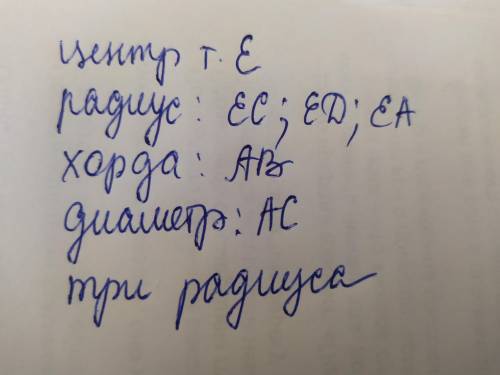 центр т. Е
радиус: ЕС; ЕD; ЕА
хорда: АВ
диаметр: АС
три радиуса